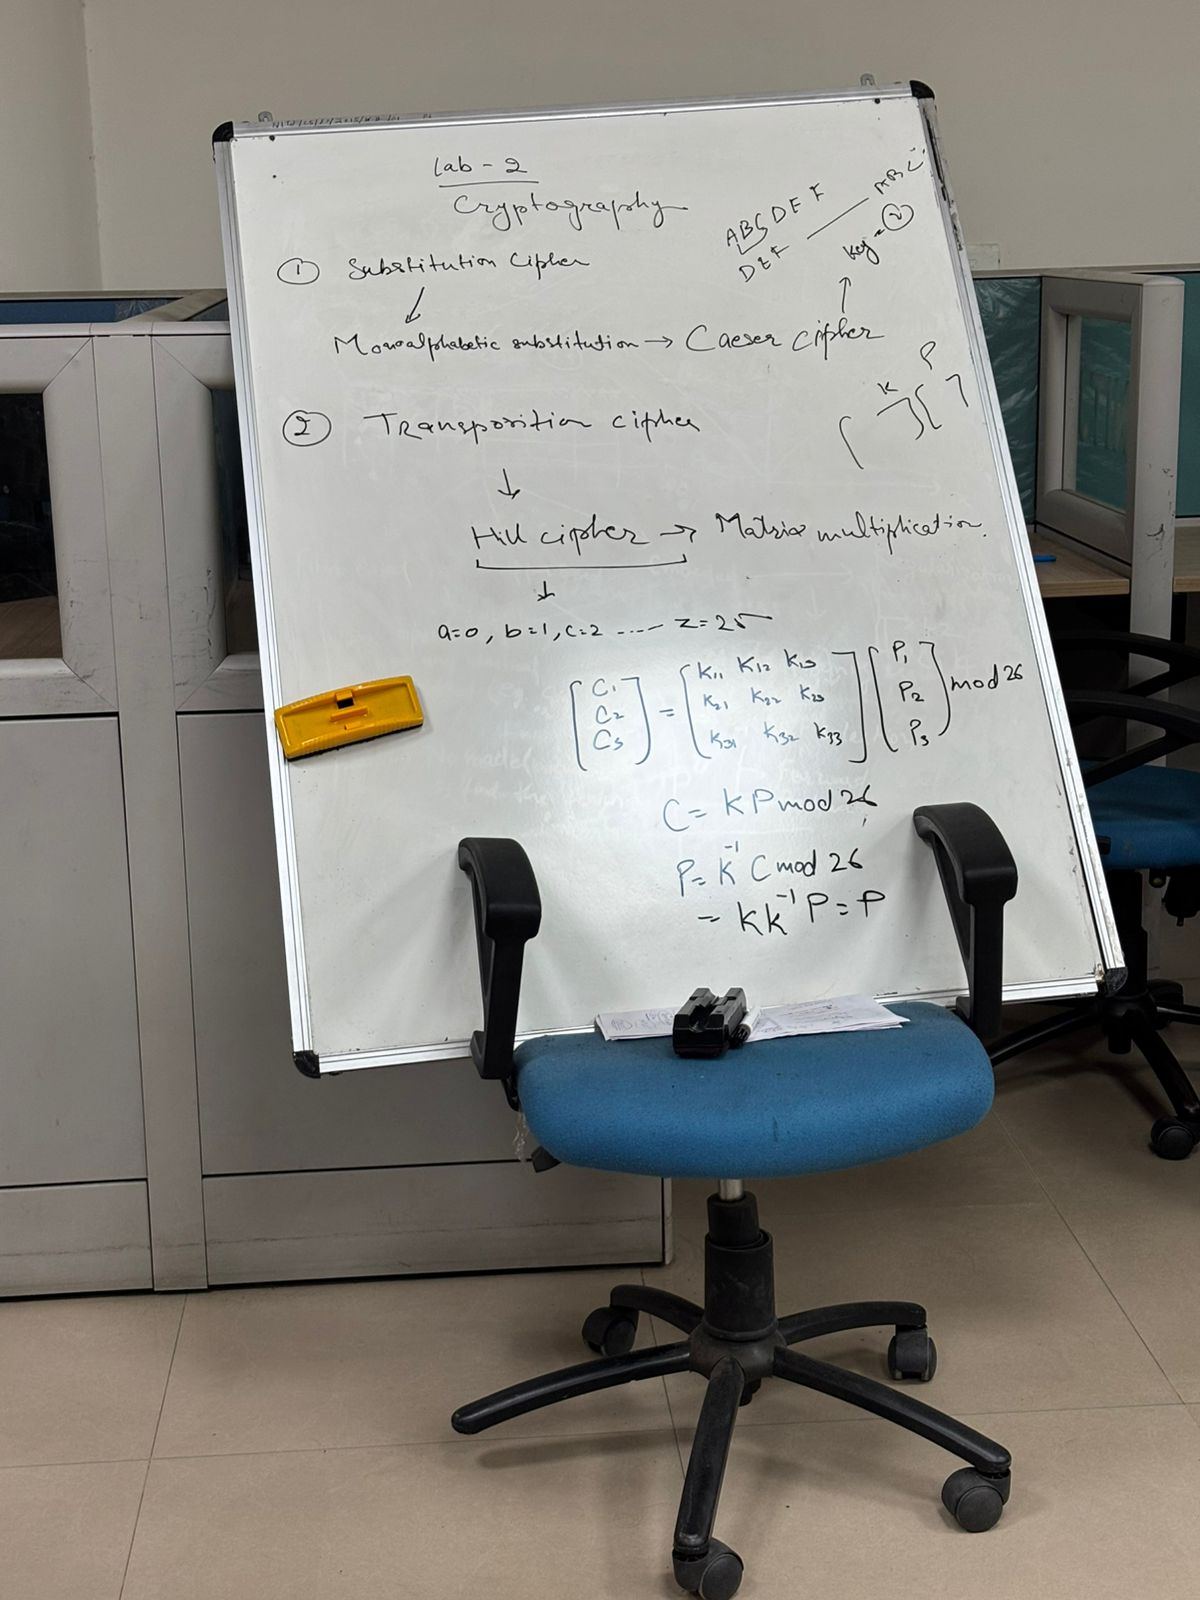 Lab - 2
Cryptography
ABCDEF ABC
DEF
Key = 2
① Substitution Cipher
Monoalphabetic substitution → Caeser cipher
K P
② Transposition cipher
↓
Hill cipher → Matrix multiplication.
↓
a=0, b=1, c=2 ..... z=25
[C1 C2 C3] = [K11 K12 K13 K21 K22 K23 K31 K32 K33] [P1 P2 P3] mod 26
C = KP mod 26
P = K⁻¹ C mod 26
= KK⁻¹ P = P